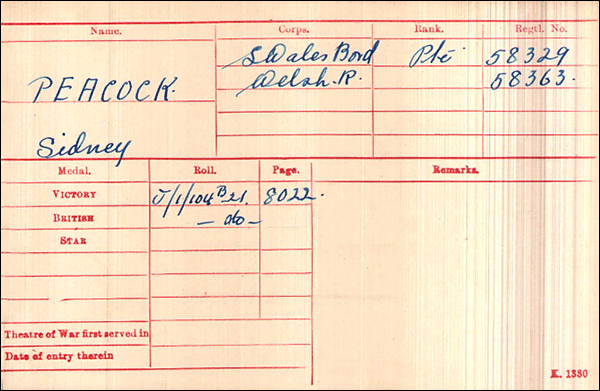 Name. Corps. Rank. Regtl. No.
S Wales Bord Pte 58329
PEACOCK. Welsh. R. 58363.
Sidney
Medal. Roll. Page. Remarks.
VICTORY J/1/104 B21. 8022.
BRITISH — do —
STAR
Theatre of War first served in
Date of entry therein
K. 1380